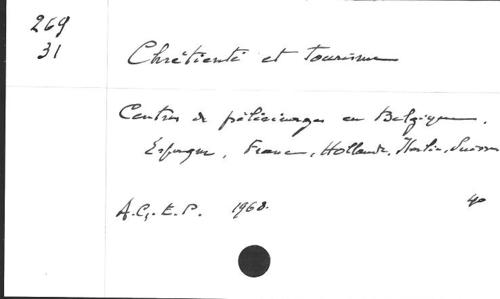 269
31
Chrétienté et tourisme
Centres de pélerinages en Belgique,
Espagne, France, Hollande, Italie, Suisse
A.C.E.P. 1968. 40